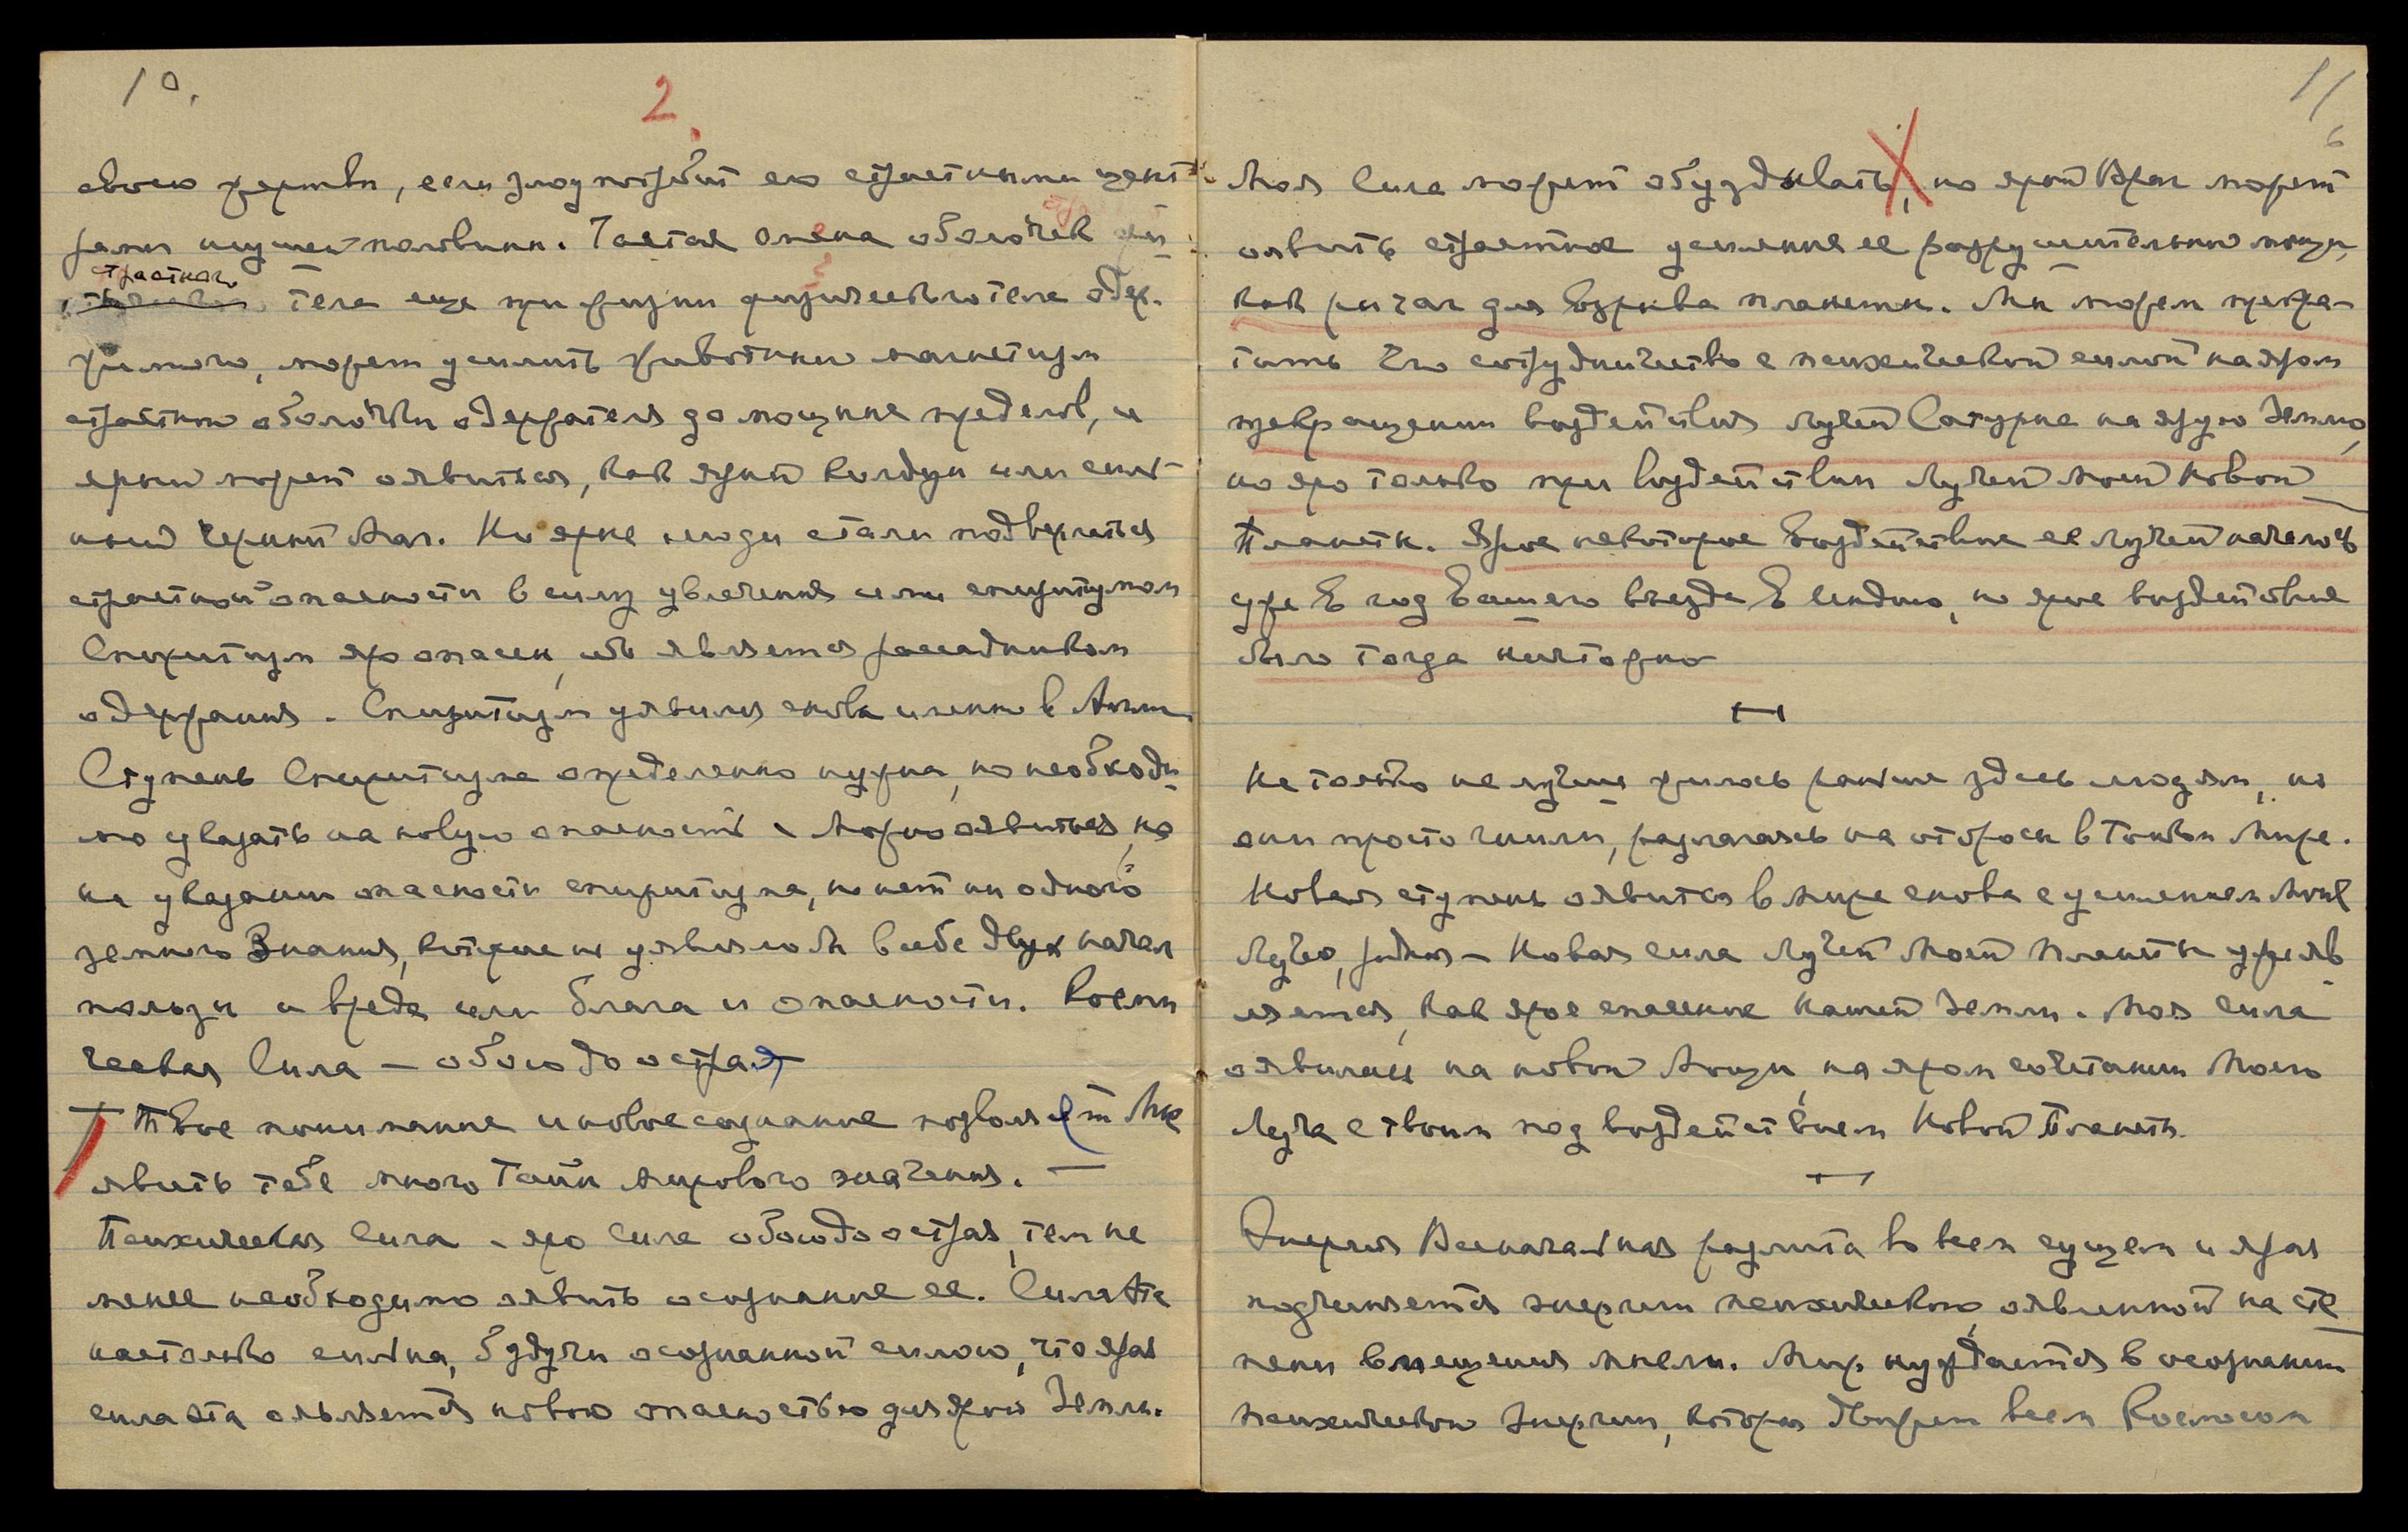 10.
2.
своею жертвы, если злоупотребит ею страстными цент-
рами низшей половины. Частая смена оболочек
страстного
тела еще при жизни физического тела одер-
жимого, может усилить животный магнетизм
страстной оболочки одержателя до мощных пределов, и
ярый может оявиться, как ярый колдун или силь-
ный черный маг. Но ярые люди стали подвергаться
страстной опасности в силу увлечения ими спиритизмом
Спиритизм яро опасен, ибо является рассадником
одержания. Спиритизм уявился снова именно в
Ступень Спиритизма определенно нужна, но необходи-
мо указать на новую опасность. Можно оявиться на
на указании опасности спиритизма, но нет ни одного
земного Знания, которое не уявляло бы в себе двух начал
пользы и вреда или блага и опасности. Косми
ческая Сила – обоюдоострая
Твое понимание и новое сознание позволяет Мне
явить тебе много Тайн мирового значения. –
Психическая Сила – яро сила обоюдоострая, тем не
менее необходимо оявить осознание ее. Сила эта
настолько сильна, будучи осознанной силою, что ярая
сила эта оявляется новою опасностью для ярой Земли.
11
6
Моя Сила может обуздывать, но ярый Враг может
оявить страстное усиление ее разрушительной мощи,
как рычаг для взрыва планеты. Мы можем прекра-
тить Его сотрудничество с психической силой на яром
прекращении воздействия лучей Сатурна на ярую Землю,
но яро только при воздействии Лучей моей новой
Планеты. Ярое некоторое воздействие ее лучей началось
уже в год Вашего въезда в Индию, но ярое воздействие
было тогда ничтожно
—
Не только не лучше жилось раньше здесь людям, но
они просто гнили, разлагаясь на отбросы в Тонком Мире.
Новая ступень оявится в мире снова с усилением Моих
Лучей, родная – Новая сила Лучей Моей Планеты уже яв
ляется, как ярое спасение нашей Земли. Моя Сила
оявилась на новой Мощи, на яром сочетании Моего
Луча с твоим под воздействием Новой Планеты.
—
Энергия Всеначальная разлита во всем сущем и ярая
подчиняется энергии психической, оявленной на сте
пени вмещения мысли. Мир нуждается в осознании
психической Энергии, которая движет всем Космосом